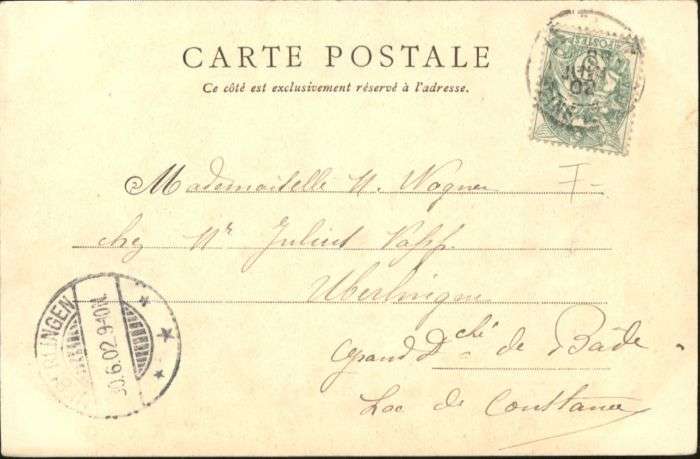 CARTE POSTALE
Ce côté est exclusivement réservé à l'adresse.
POSTES
JUIN
02
Mademoiselle H. Wagner
chez Mr Julius
Uberlingen
Grand Dché de Bade
Lac de Constance
RLINGEN
30.6.02.9-10V.